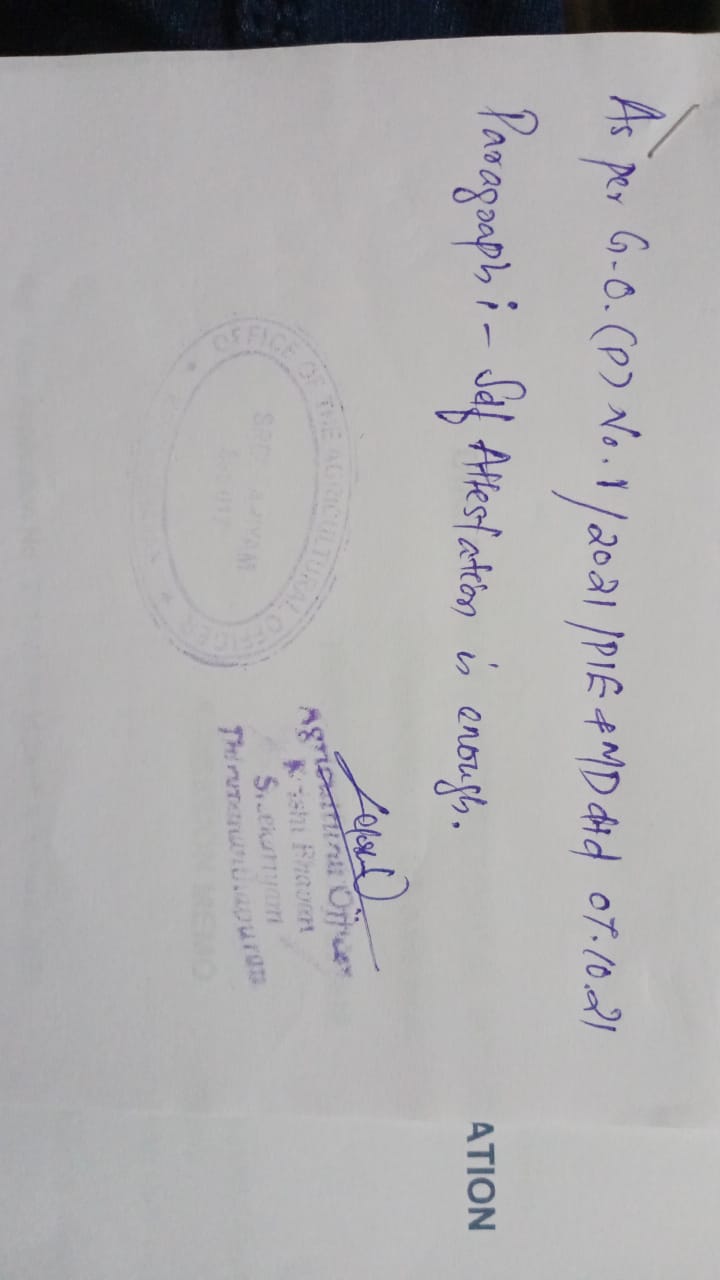 As per G.O.(P) No.1/2021/PIE&MD dtd 07.10.21
Paragraph i - Self Attestation is enough.
OFFICE OF THE AGRICULTURAL OFFICER
Agricultural Officer
Krishi Bhavan
Sreekariyam
Thiruvananthapuram
ATION
ION MEMO